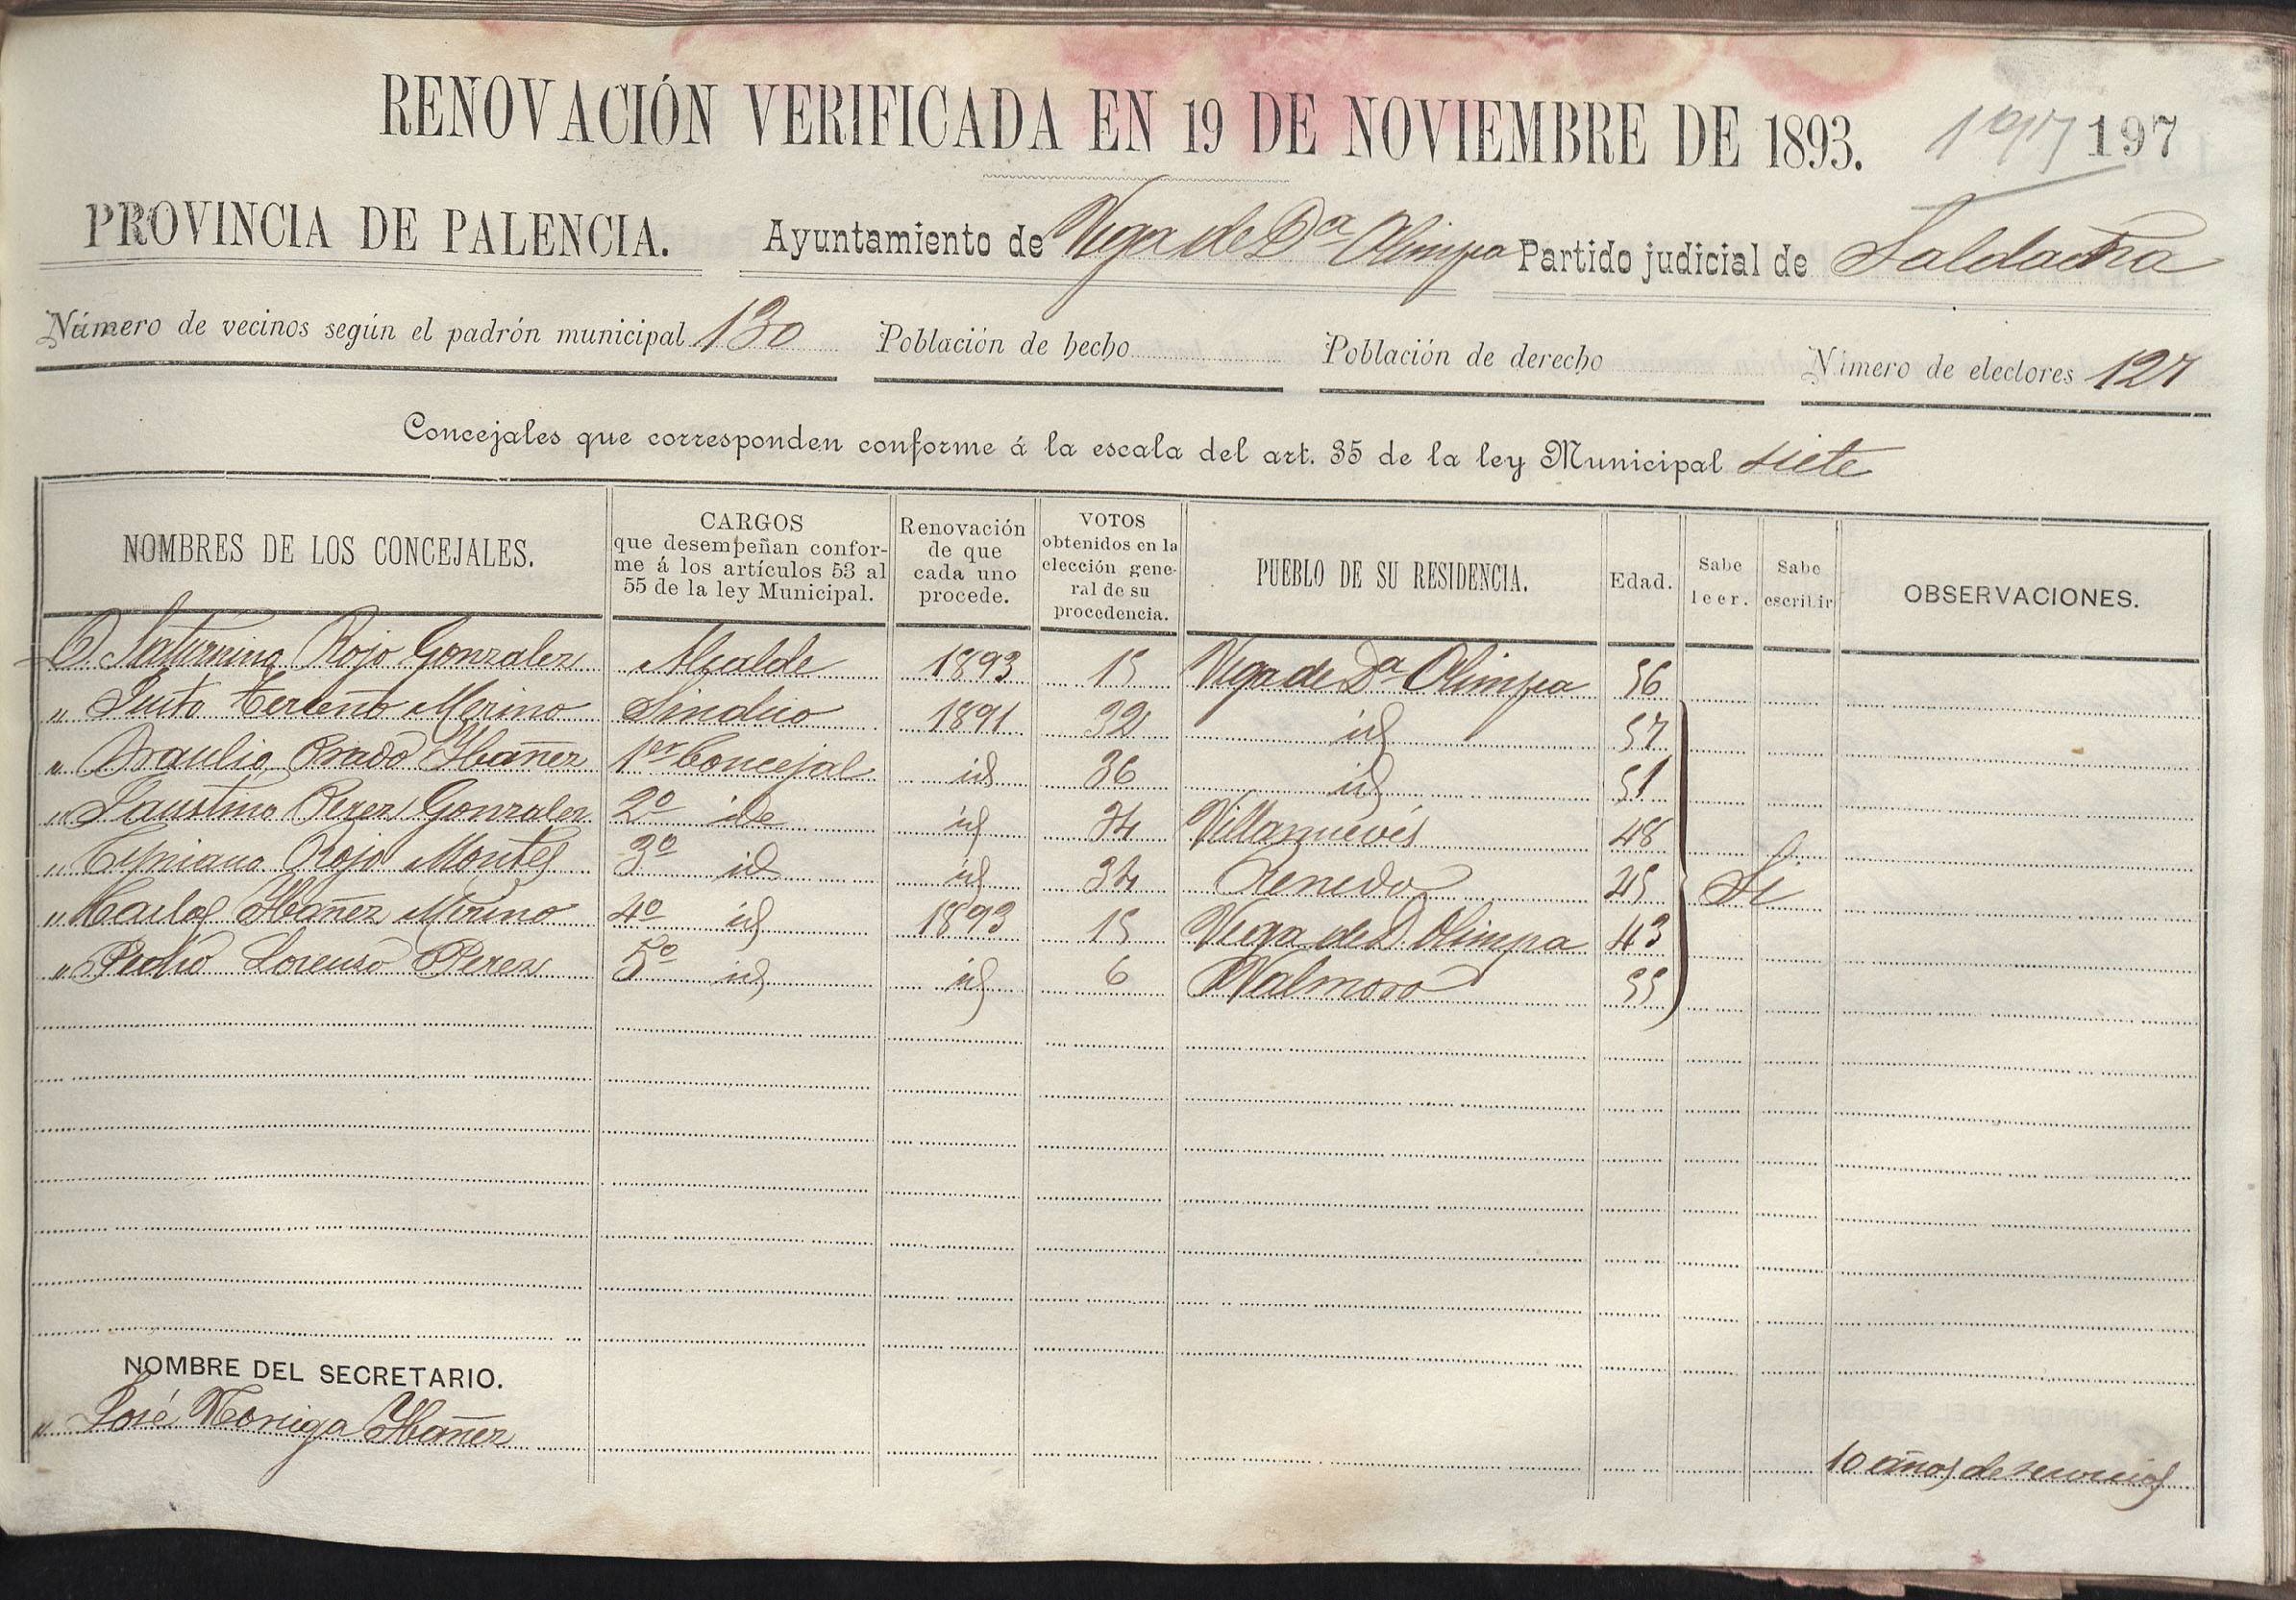 RENOVACIÓN VERIFICADA EN 19 DE NOVIEMBRE DE 1893. 197 197
PROVINCIA DE PALENCIA. Ayuntamiento de Vega de Dª Olimpa Partido judicial de Saldaña
Número de vecinos según el padrón municipal 130 Población de hecho Población de derecho Número de electores 127
Concejales que corresponden conforme á la escala del art. 35 de la ley Municipal siete
NOMBRES DE LOS CONCEJALES. CARGOS que desempeñan conforme á los artículos 53 al 55 de la ley Municipal. Renovación de que cada uno procede. VOTOS obtenidos en la elección general de su procedencia. PUEBLO DE SU RESIDENCIA. Edad. Sabe leer. Sabe escribir OBSERVACIONES.
D. Saturnino Rojo Gonzalez Alcalde 1893 15 Vega de Dª Olimpa 56
" Justo Terceño Merino Sindico 1891 32 id 57
" Braulio Prado Ybañez 1er Concejal id 36 id 51
" Faustino Perez Gonzalez 2º id id 34 Villanueva 48
" Cipriano Rojo Montes 3º id id 34 Renedo 45 Si
" Carlos Ybañez Merino 4º id 1893 15 Vega de D. Olimpa 43
" Pedro Lorenzo Perez 5º id id 6 Valmoro 55
NOMBRE DEL SECRETARIO.
" José Noriega Ybañez 10 años de servicios